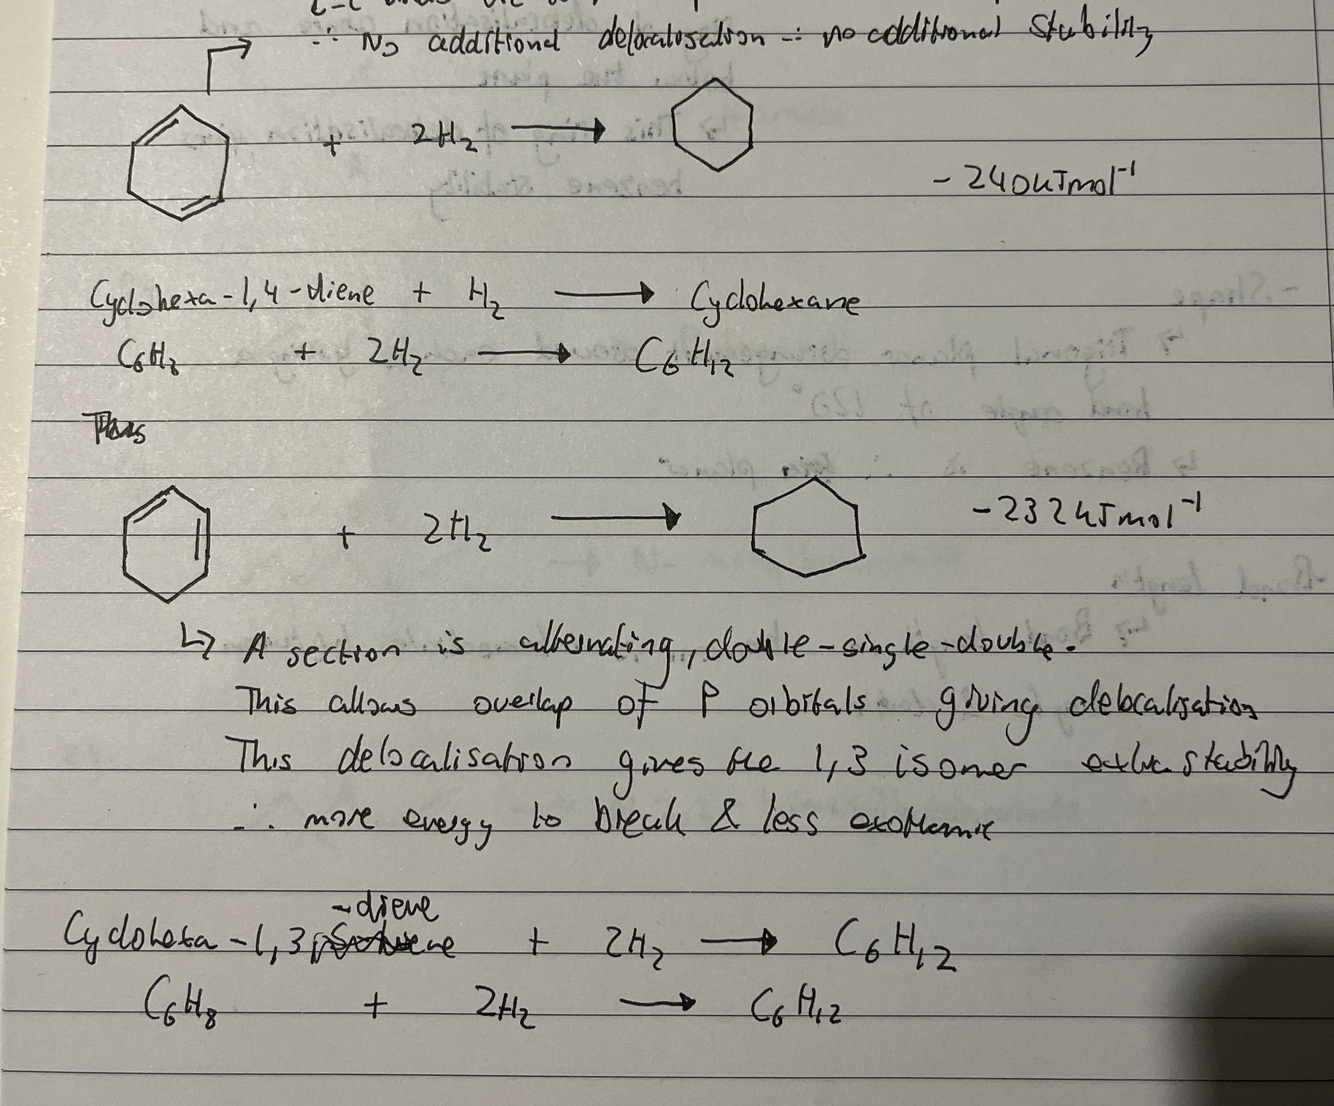 ∴ No additional delocalisation ∴ no additional stability
+ 2H₂ ⟶
- 240kJmol⁻¹
Cyclohexa-1,4-diene + H₂ ⟶ Cyclohexane
C₆H₈ + 2H₂ ⟶ C₆H₁₂
+ 2H₂ ⟶ -232kJmol⁻¹
↳ A section is alternating, double-single-double.
This allows overlap of P orbitals giving delocalisation
This delocalisation gives the 1,3 isomer extra stability
∴ more energy to break & less exothermic
-diene
Cyclohexa-1,3 + 2H₂ ⟶ C₆H₁₂
C₆H₈ + 2H₂ ⟶ C₆H₁₂